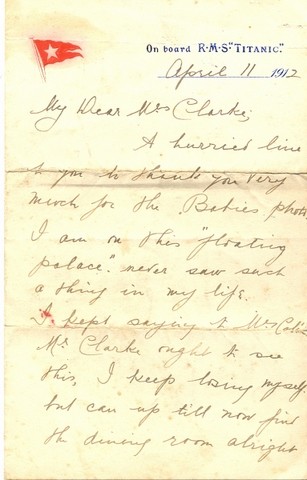 On board R·M·S "TITANIC."
April 11 1912
My Dear Mrs Clarke,
A hurried line
to you to thank you very
much for the Babies photo,
I am on this "floating
palace". never saw such
a thing in my life.
I kept saying to Mrs
Mr Clarke ought to see
this, I keep losing myself
but can up till now find
the dining room alright